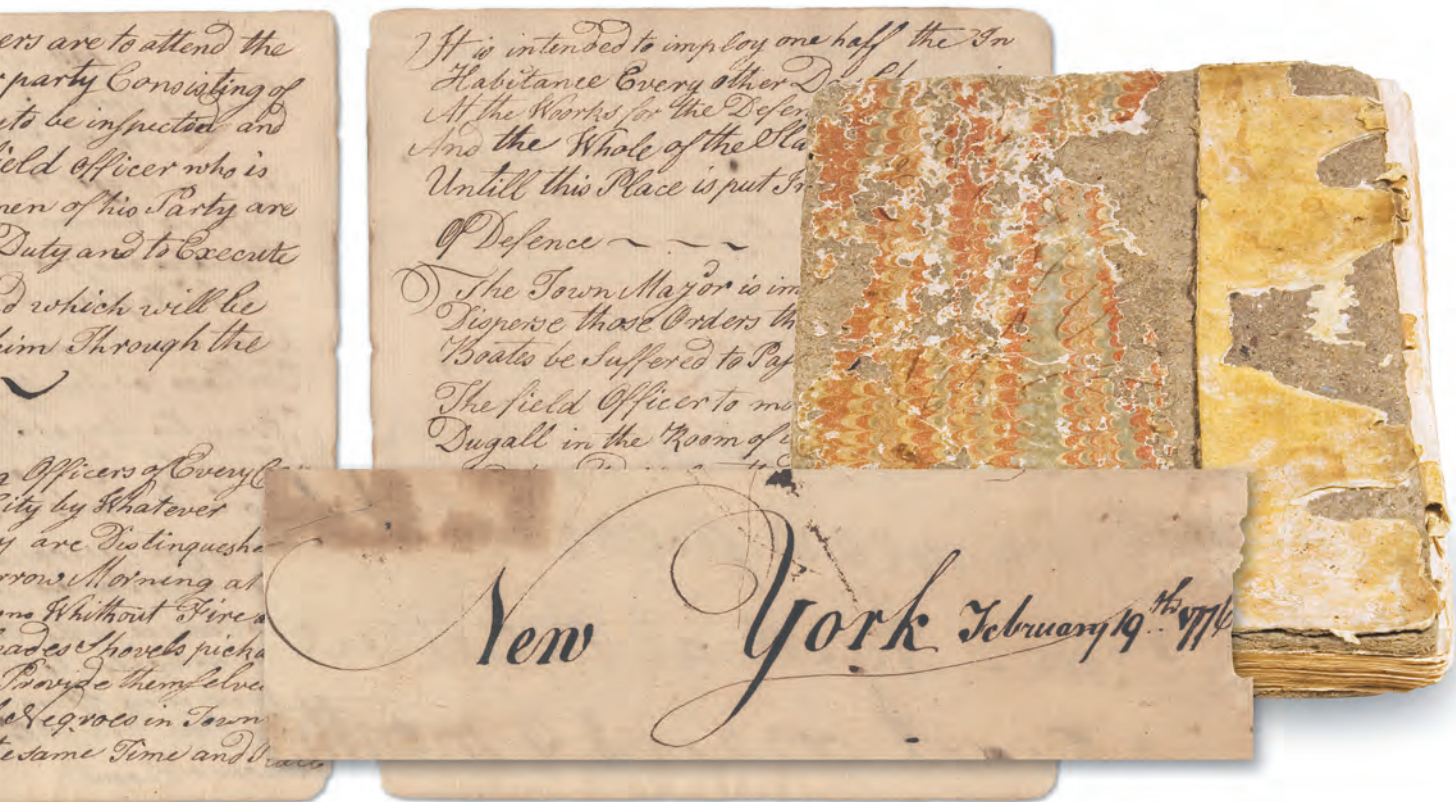 ers are to attend the
party Consisting of
to be inspected and
field Officer who is
men of his Party are
Duty and to Execute
d which will be
him Through the
Officers of Every
ity by Whatever
are Distinqueshe
rrow Morning at
Whithout Fire a
ades Shovels picka
Provide themselve
Negroes in Town
e same Time and
It is intended to imploy one half the In
Habitance Every other D
At the Woorks for the Defen
And the Whole of the Sla
Untill this Place is put In
Of Defence
The Town Mayor is im
Disperse those Orders th
Boates be Suffered to Pas
The field Officer to mo
Dugall in the Room of
New York February 19th 1776